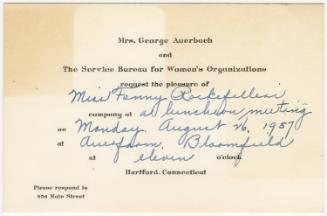 Mrs. George Auerbach
and
The Service Bureau for Women's Organizations
request the pleasure of
Miss Fanny Rockefeller
company at a luncheon meeting
on Monday August 26, 1957
at Auerfarm, Bloomfield
at eleven o'clock
Hartford, Connecticut
Please respond to
956 Main Street